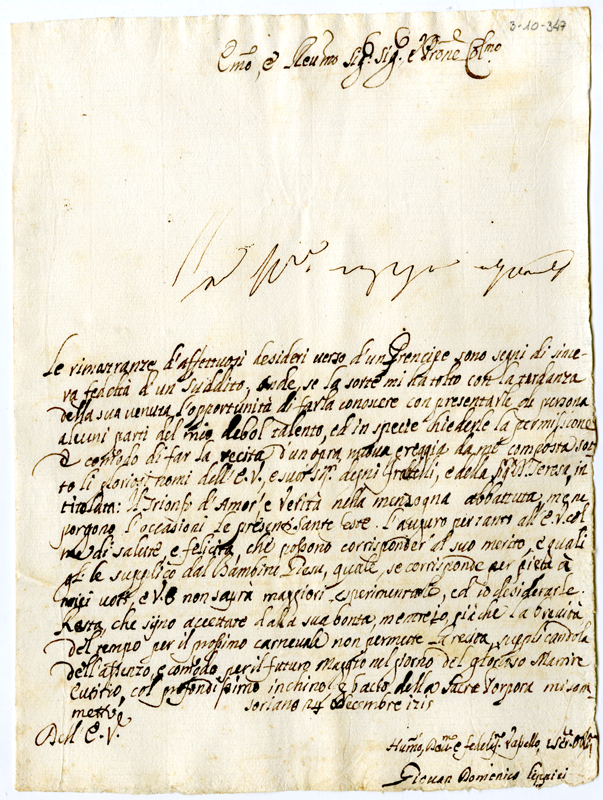 3-10-347
Emo, e Reumo Sigr. Sigr. e Prone Colmo
Le rimostranze d'affettuosi desideri verso d'un Prencipe sono segni di since-
ra fedeltà d'un Suddito, onde, se la sorte mi ha tolto con la tardanza
della sua venuta l'opportunità di farla conoscere con presentarle di persona
alcuni parti del mio debol talento, ed in specie chiederle la permissione
e comodo di far la recita d'un opra nova e reggia da me composta sot
to li gloriosi nomi dell'E.V., e suoi degni fratelli, e della Teresa, in
titolata: il Trionfo d'Amor, e Verità nella menzogna abbattuta, me ne
porgono l'occasioni le presenti Sante feste. L'auguro pertanto all'E.V. col
di salute, e felicità, che possono corrisponder al suo merito, e quali
le supplico dal Bambino Giesu, quale, se corrisponde per pietà à
miei voti, e V.E. non saprà maggiori esperimentarle, ed io desiderarle.
Resta che siano accettate dalla sua bontà, mentre io, già che la brevità
del tempo per il prossimo carnevale non permette la recita, supplicandola
dell'assenzo, e comodo per il futuro Maggio nel giorno del glorioso Martire
Eutitio, col profondissimo inchino, e bacio della Sacra Porpora mi som-
metto
Soriano 24 Decembre 1715
Dell' E.V.
Humo, Devmo e fedelismo Vassallo, e
Giovan Domenico